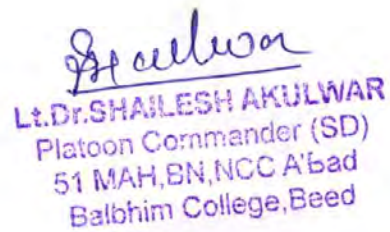 Lt.Dr.SHAILESH AKULWAR
Platoon Commander (SD)
51 MAH,BN,NCC A'bad
Balbhim College,Beed